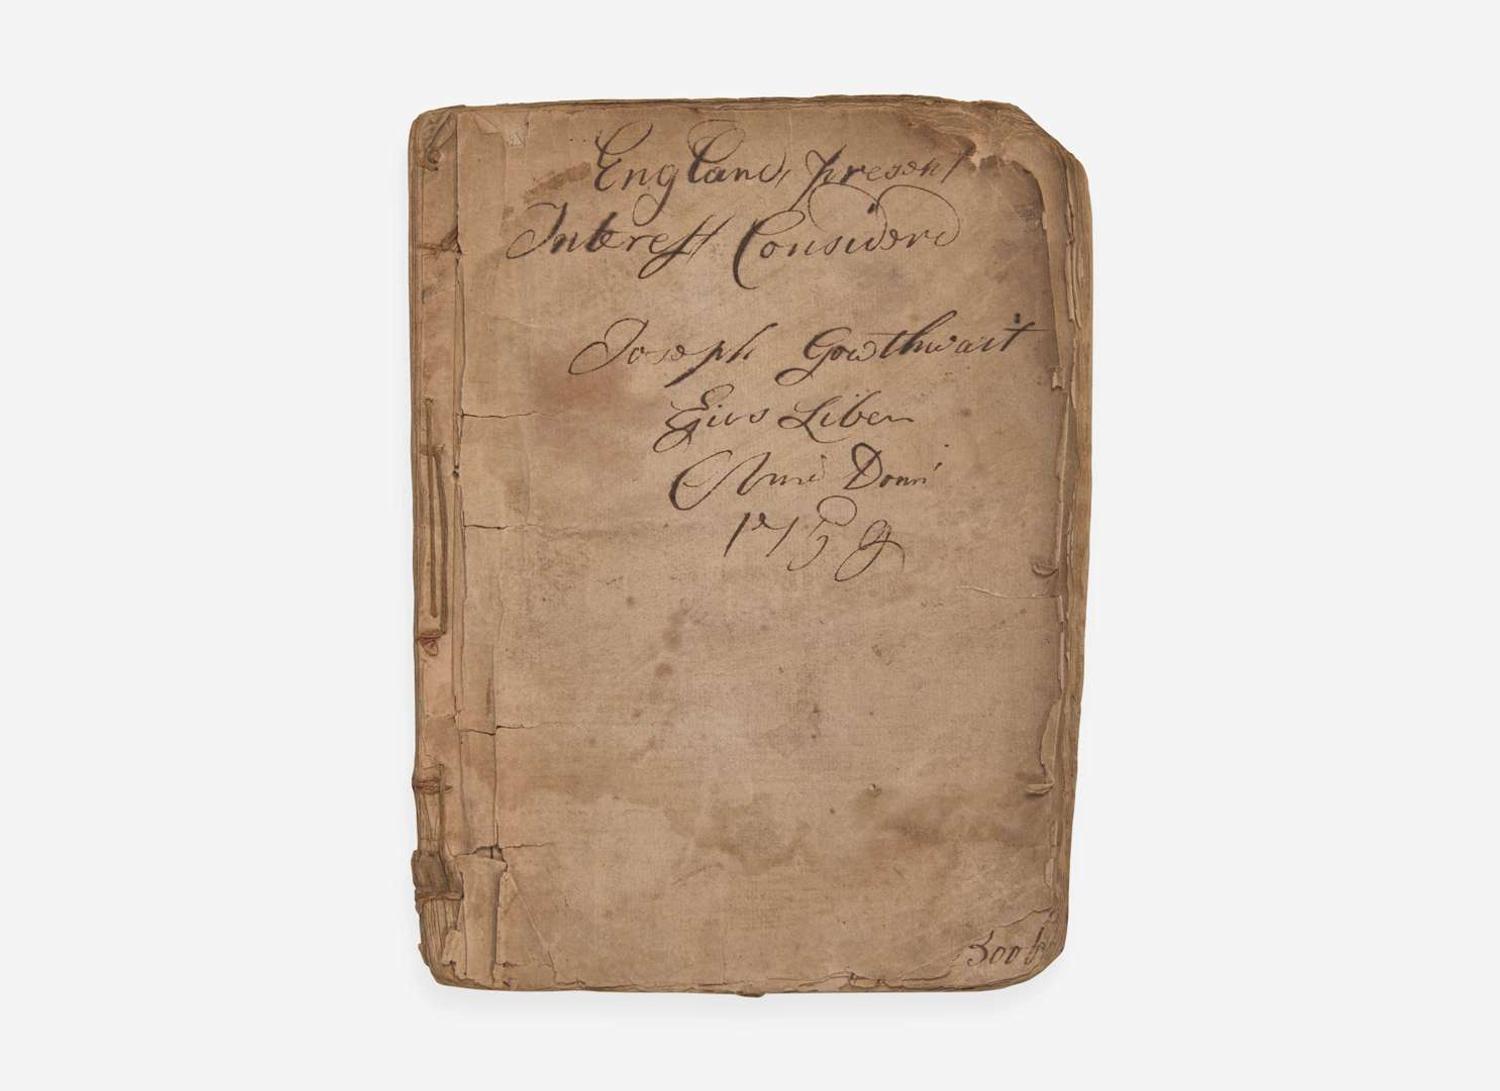 England, present
Interest Considerd
Joseph Gowthwait
Eius Liber
Anno Domi
1759